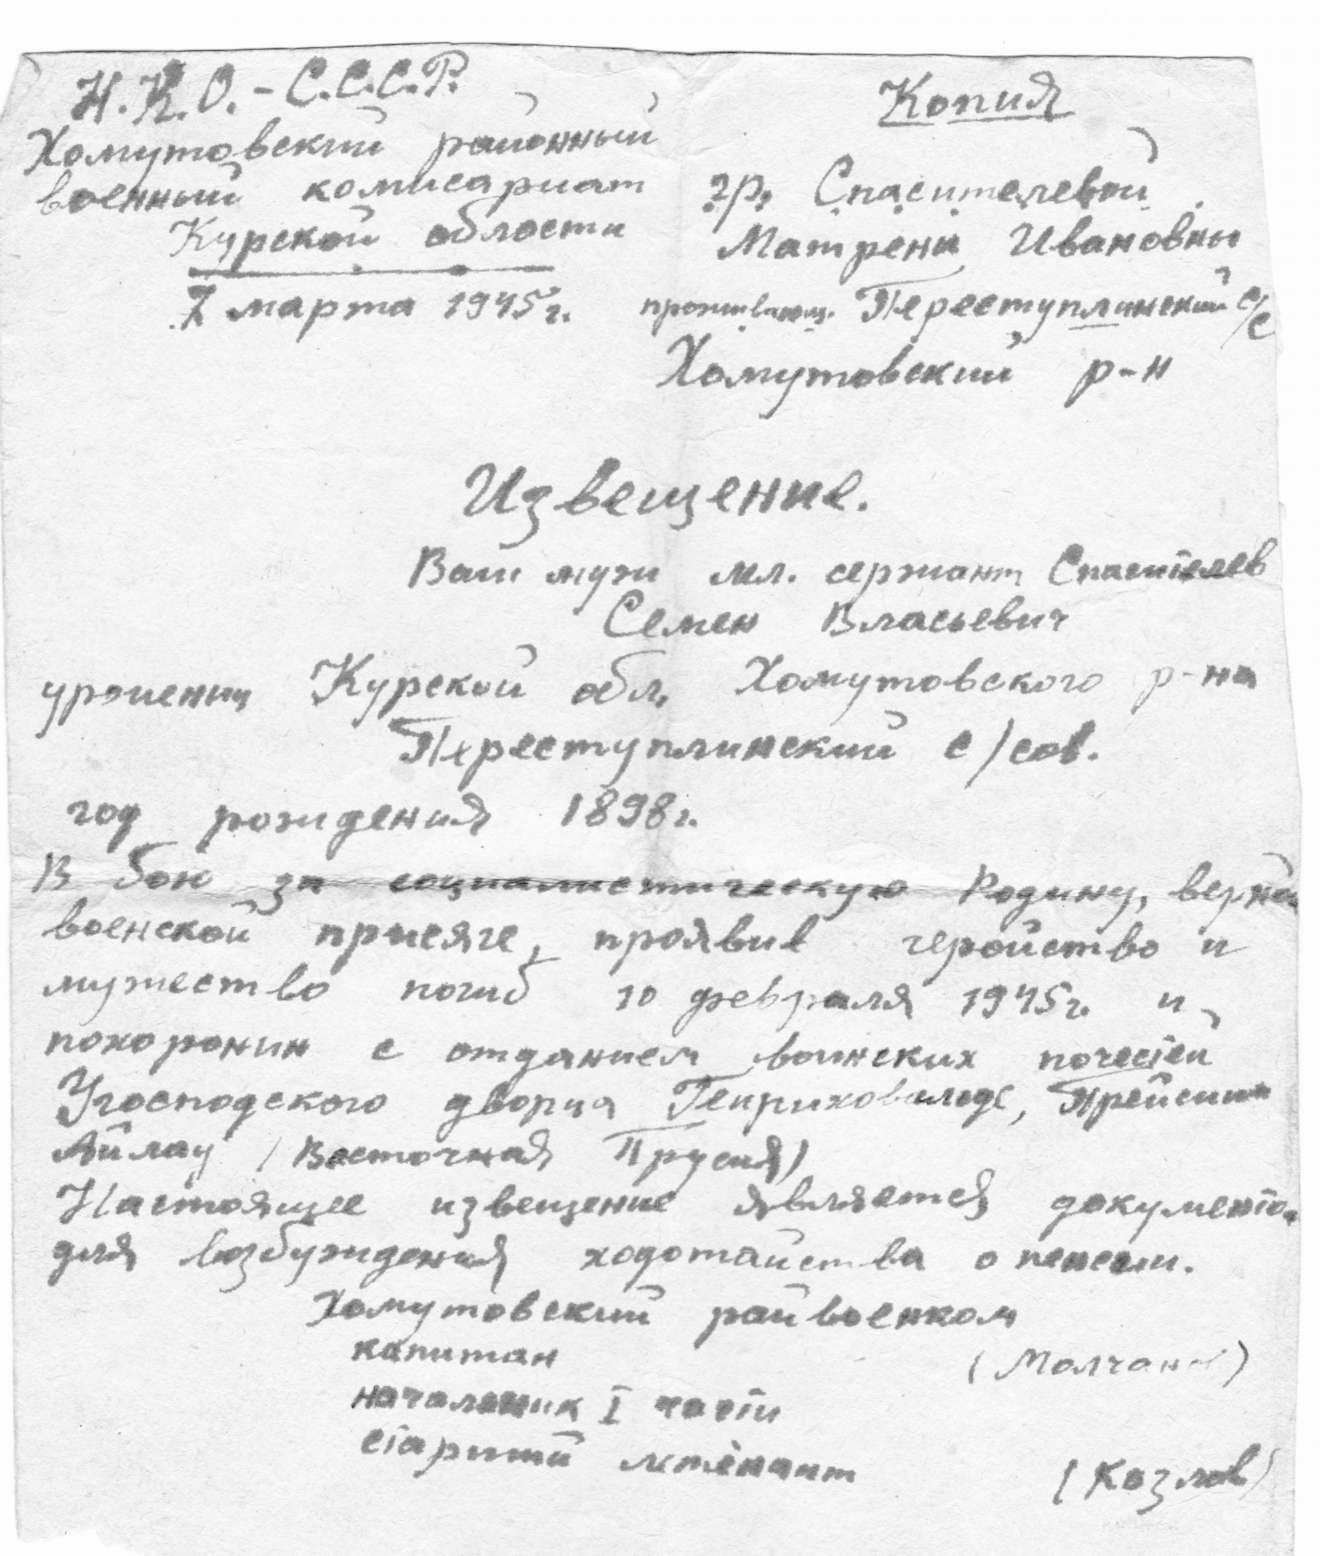 Н.К.О. - С.С.С.Р.
Хомутовский районный
военный комисариат
Курской области
7 марта 1945 г.
Копия
гр. Спасителевой
Матрени Ивановны
проживающ. Переступлинский с/с
Хомутовский р-н
Извещение.
Ваш муж мл. сержант Спасителев
Семен Власьевич
урженец Курской обл. Хомутовского р-на
Переступлинский с/сов.
год рождения 1898 г.
В бою за социалистическую Родину, верный
военской присяге, проявив геройство и
мужество погиб 10 февраля 1945 г. и
похоронин с отданием воинских почестей
У господского дворца Генриховальде, Прейсиш
Айлау (Восточная Прусия)
Настоящее извещение является документом
для возбуждения ходотайства о пенсии.
Хомутовский райвоенком
капитан (Молчанов)
начальник I части
старший летенант
(Козлов)